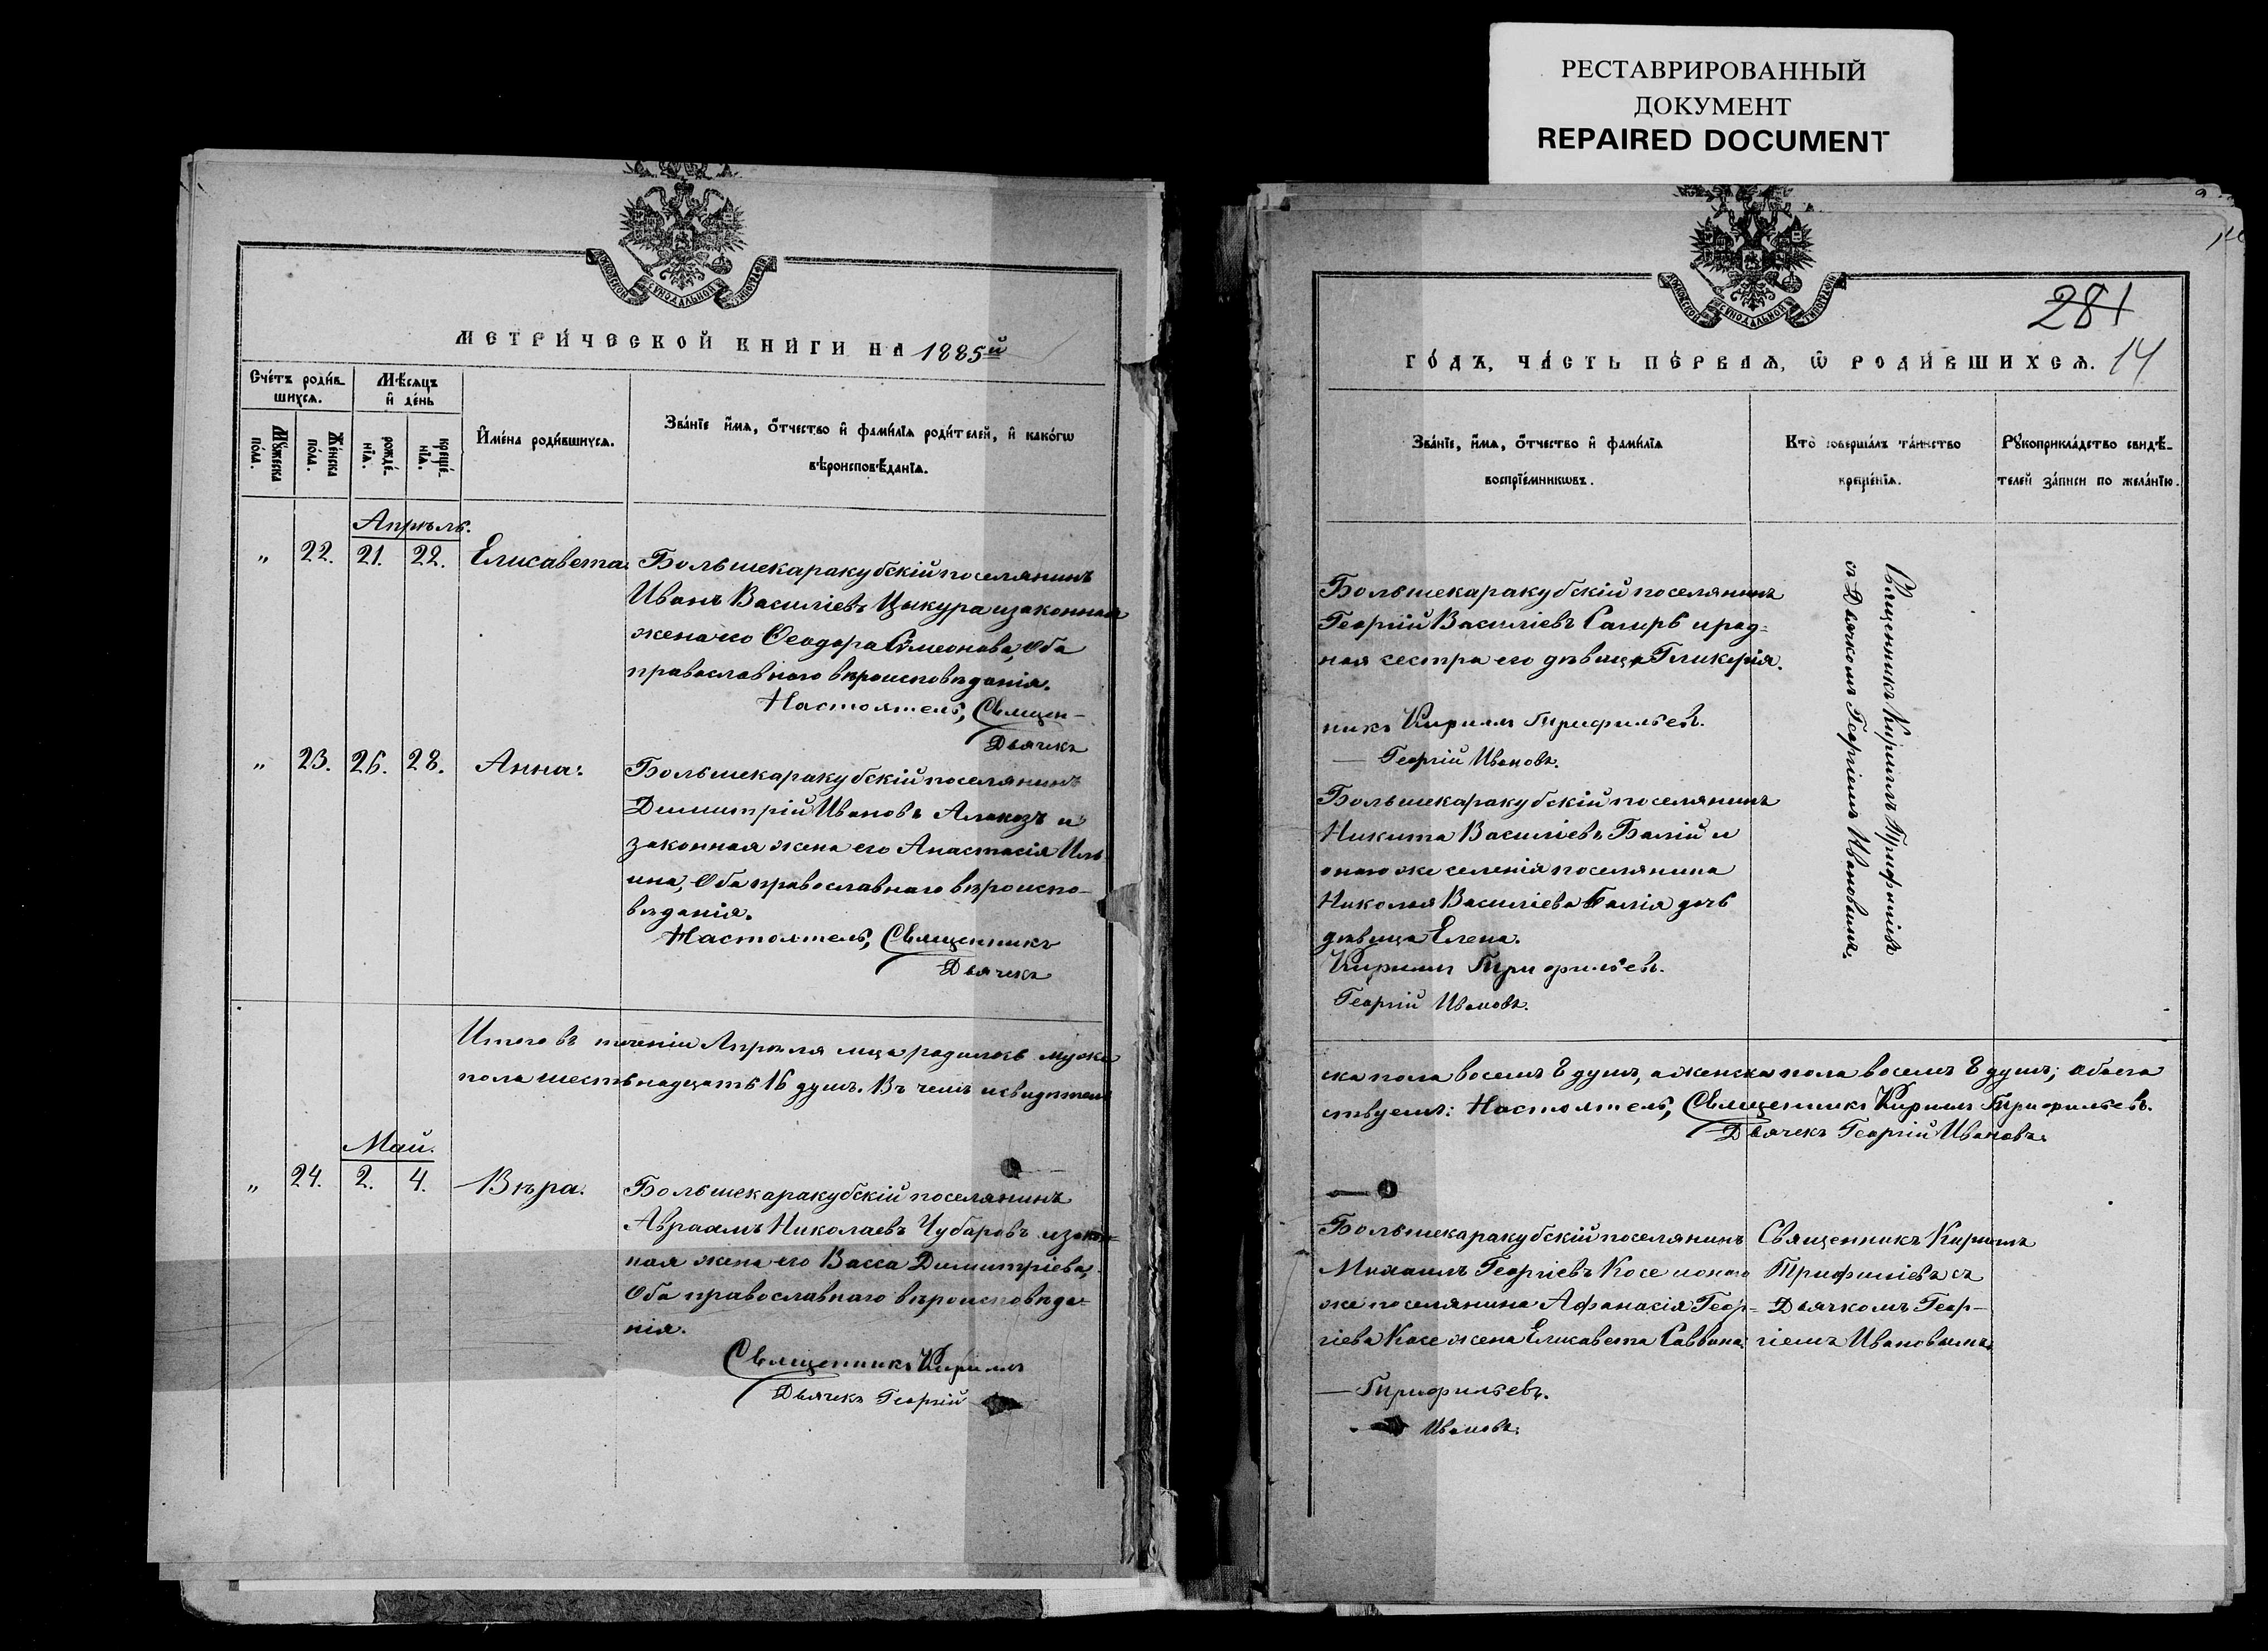 РЕСТАВРИРОВАННЫЙ
ДОКУМЕНТ
REPAIRED DOCUMENT
МОСКОВСКОЙ СѴНОДАЛЬНОЙ ТИПОГРАФІИ
МЕТРИ́ЧЕСКОЙ КНИ́ГИ НА 1885й
Сче́тъ роди́в-
шихсѧ.
Мѣ́сѧцъ
и҆ де́нь
Мꙋ́жеска
по́ла.
Же́нска
по́ла.
рожде́-
нїѧ.
креще́-
нїѧ.
И҆мена̀ роди́вшихсѧ.
Зва́нїе и҆́мѧ, ѻ҆́тчество и҆ фами́лїѧ роди́телей, и҆ како́гѡ
вѣроисповѣ́данїѧ.
Апрѣль.
" 22. 21. 22. Елисавета.
Большекаракубскій поселянинъ
Иванъ Василіевъ Цыкура и законная
жена его Ѳеодора Симеонова, Оба
православнаго вѣроисповѣданія.
Настоятель, Священ-
Дьячекъ
" 23. 26. 28. Анна:
Большекаракубскій поселянинъ
Димитрій Ивановъ Алакозъ и
законная жена его Анастасія Иль-
ина, Оба православнаго вѣроиспо-
вѣданія.
Настоятель, Священникъ
Дьячекъ
Итого въ теченіи Апрѣля мца родилось мужс
пола шестьнадцать 16 душъ. Въ чемъ и свидѣтель
Май.
" 24. 2. 4. Вѣра.
Большекаракубскій поселянинъ
Авраамъ Николаевъ Чубаровъ и закон-
ная жена его Васса Димитріева,
Оба православнаго вѣроисповѣда-
нія.
Священникъ Кириллъ
Дьячекъ Георгій
МОСКОВСКОЙ СѴНОДАЛЬНОЙ ТИПОГРАФІИ
281
ГО́ДЪ, ЧА́СТЬ ПЕ́РВАѦ, Ѡ҆ РОДИ́ВШИХСѦ. 14
Зва́нїе, и҆́мѧ, ѻ҆́тчество и҆ фами́лїѧ
воспрїе́мникѡвъ.
Кто̀ соверша́лъ та́инство
креще́нїѧ.
Рꙋкоприкла́дство свидѣ́-
телей за́писи по жела́нїю.
Большекаракубскій поселянинъ
Георгій Василіевъ Сагирь и род-
ная сестра его дѣвица Гликерія.
никъ Кириллъ Трифильевъ.
— Георгій Ивановъ.
Большекаракубскій поселянинъ
Никита Василіевъ Балій и
онаго же селенія поселянина
Николая Василіева Балія дочь
дѣвица Елена.
Кириллъ Трифильевъ.
Георгій Ивановъ.
Священникъ Кириллъ Трифиліевъ
съ Дьячкомъ Георгіемъ Ивановымъ.
ска пола восемь 8 душъ, а женска пола восемь 8 душъ; обоего
ствуемъ: Настоятель, Священникъ Кириллъ Трифильевъ.
Дьячекъ Георгій Ивановъ.
Большекаракубскій поселянинъ
Михаилъ Георгіевъ Косе и онаго
же поселянина Афанасія Геор-
гіева Косе жена Елисавета Саввина.
Священникъ Кириллъ
Трифиліевъ съ
Дьячкомъ Геор-
гіемъ Ивановымъ.
— Трифильевъ.
Ивановъ.